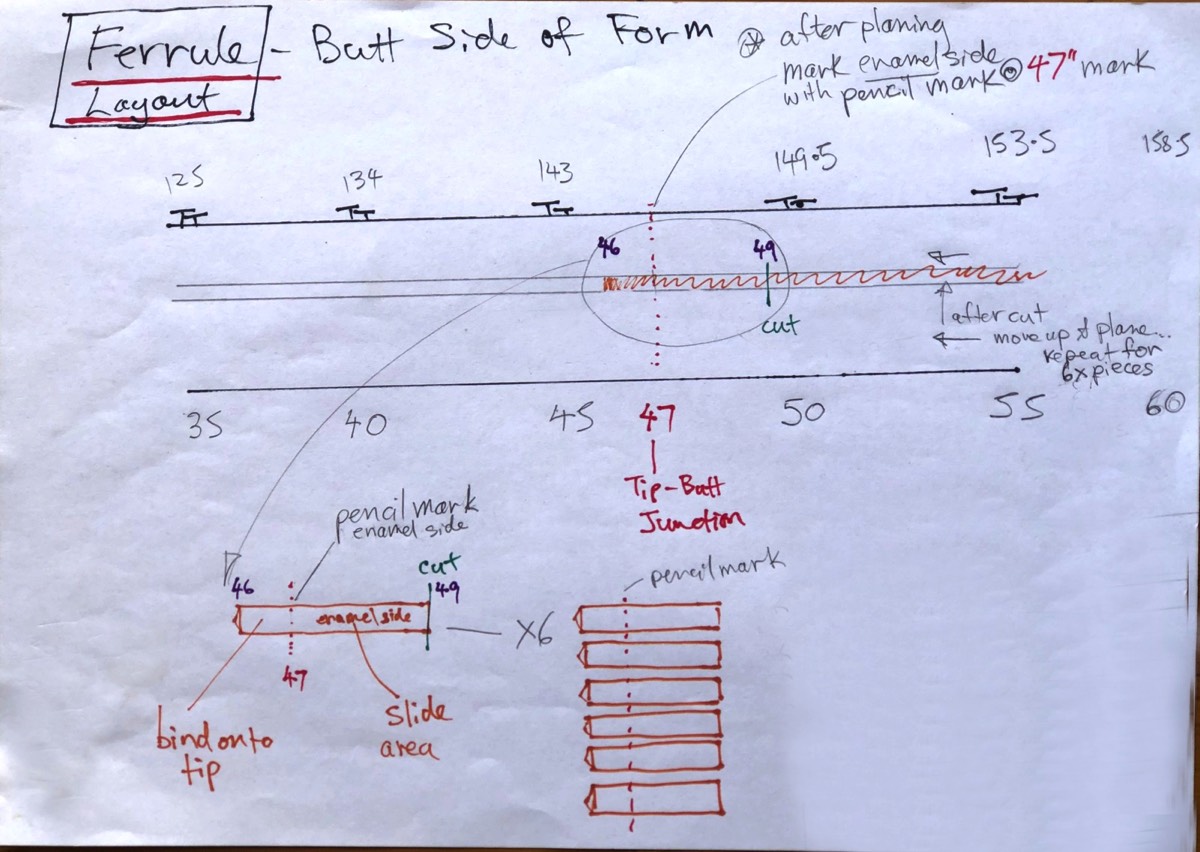 Ferrule - Butt Side of Form
Layout
⊛ after planing
mark enamel side
with pencil mark @ 47" mark
125 134 143 149.5 153.5 158.5
46 49
cut
after cut
move up & plane...
repeat for
6x pieces
35 40 45 47 50 55 60
Tip-Butt
Junction
pencil mark
enamel side
cut
46 49
enamel side
47
X6
bind onto
tip
slide
area
pencil mark